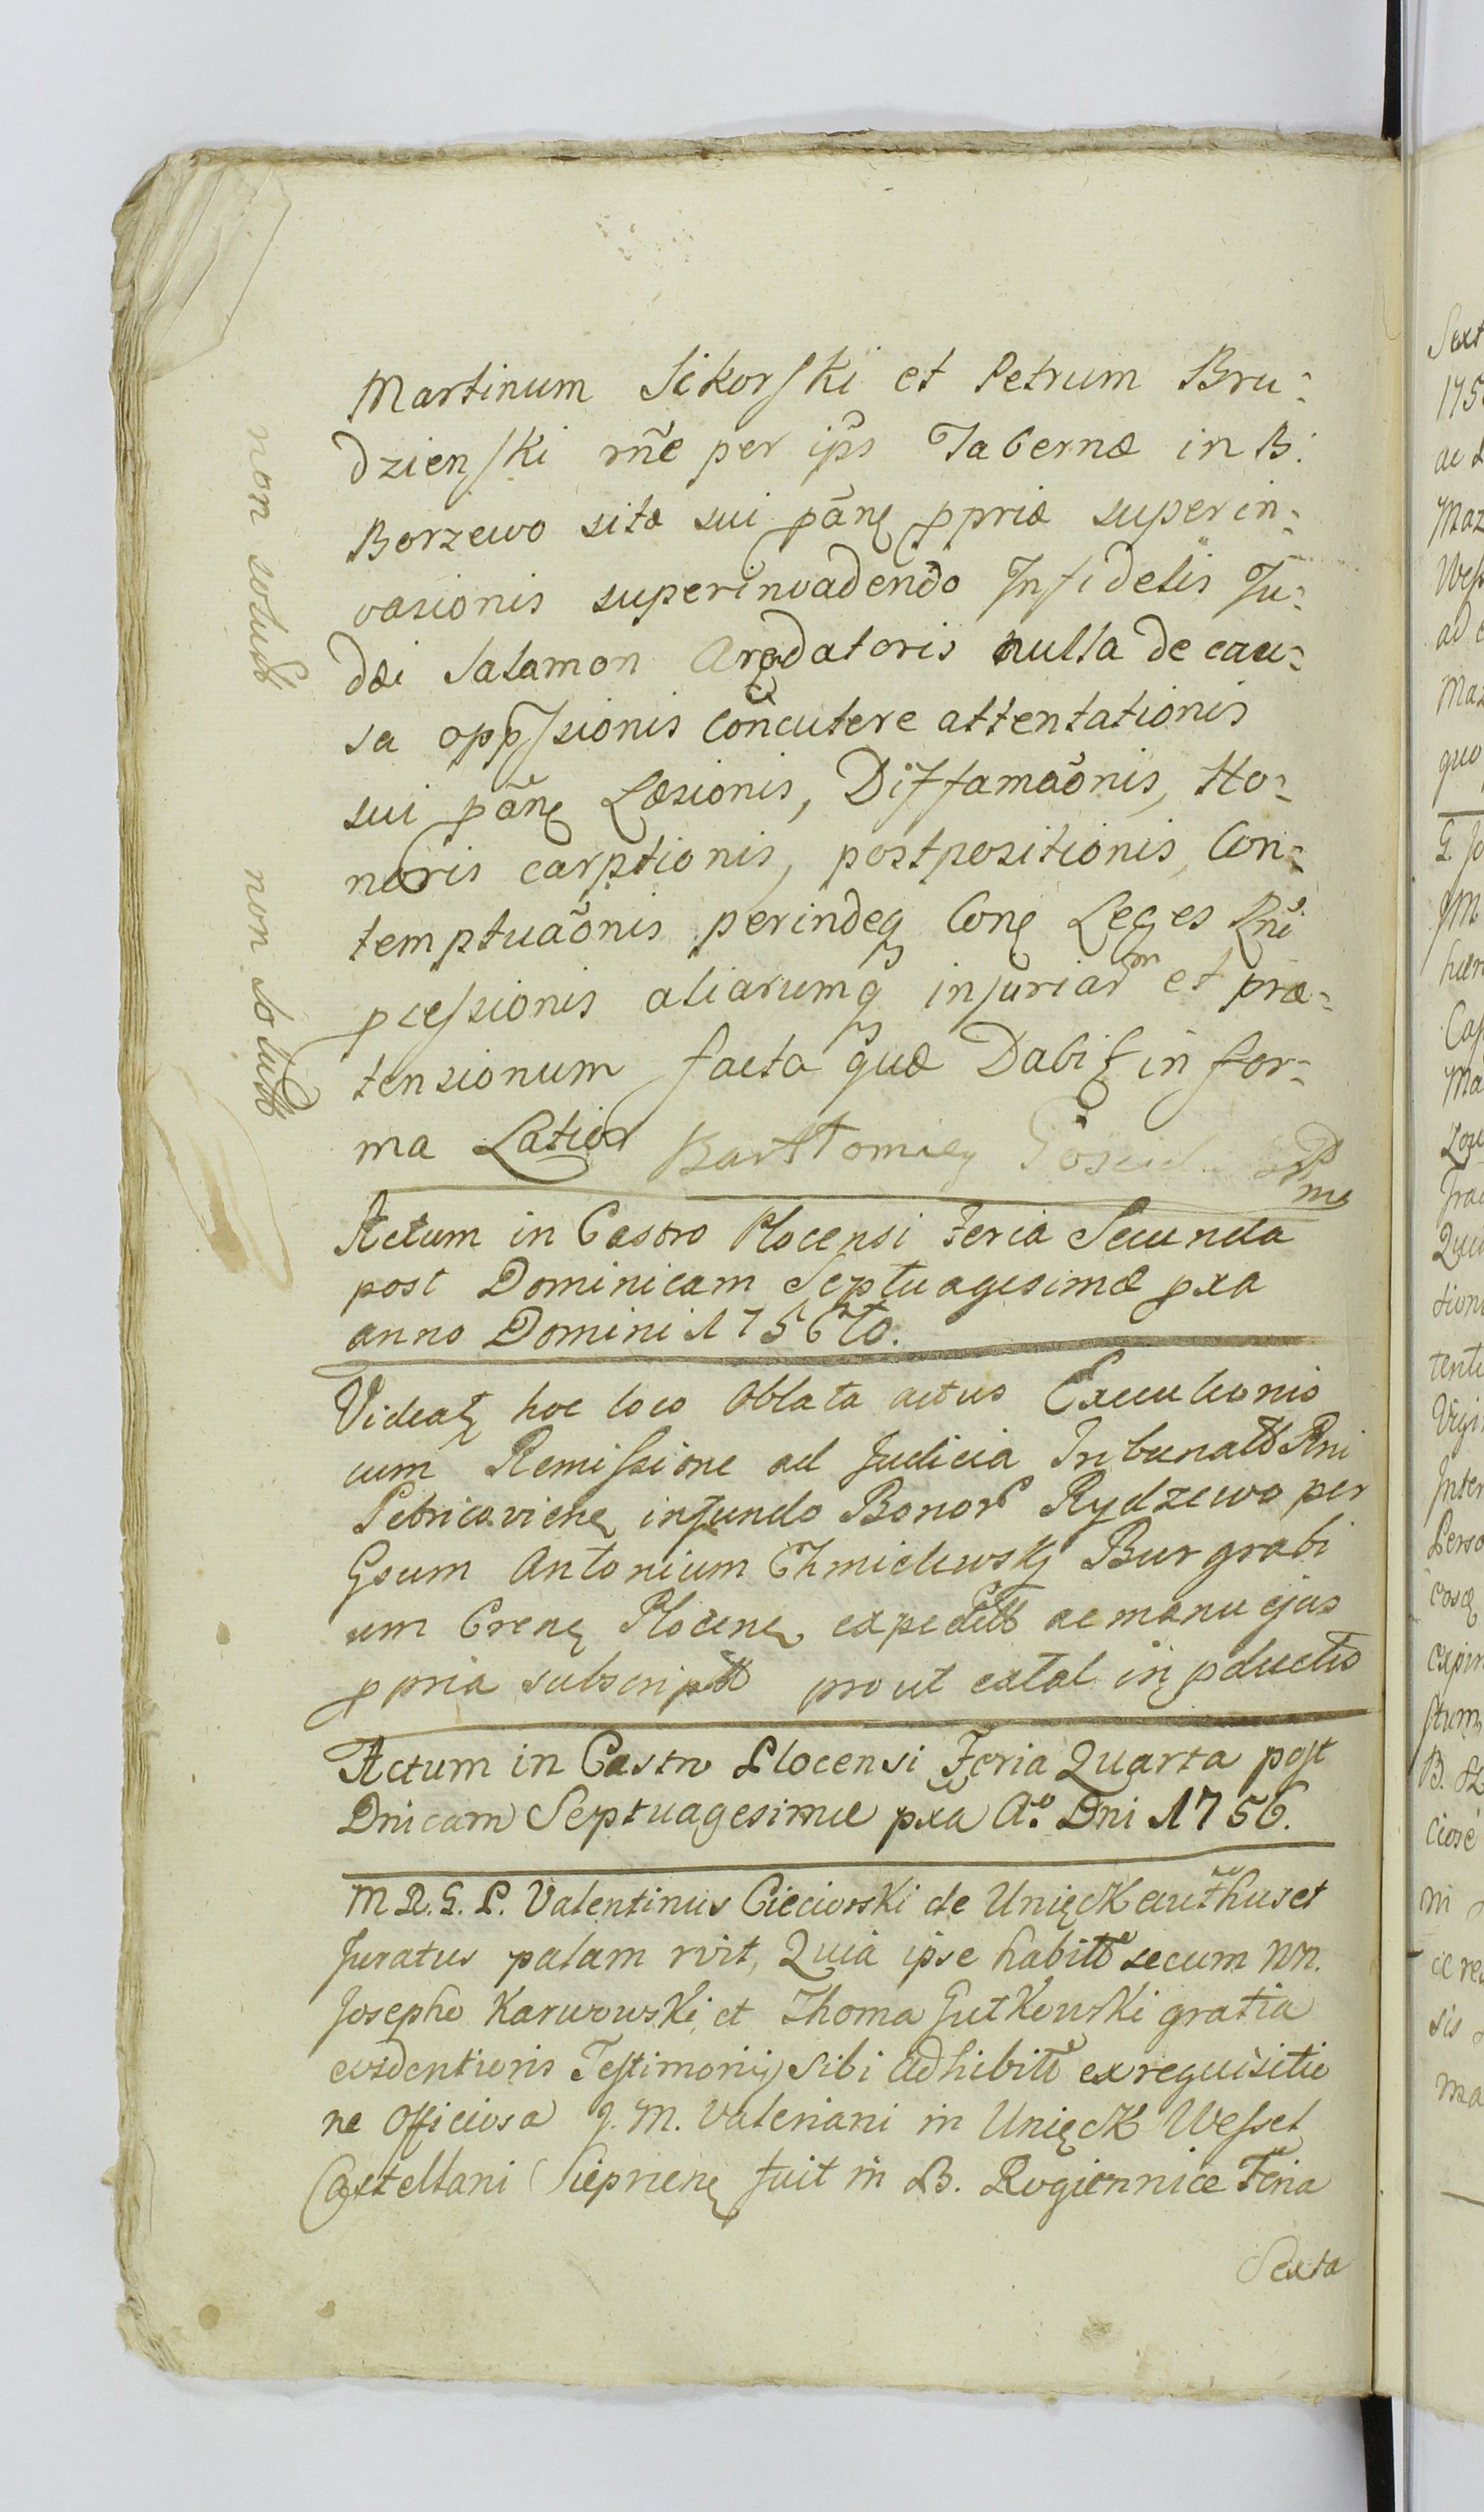 Martinum Sikorski et Petrum Bru=
dzienski rñe per ips Tabernæ in B:
Borzewo sitæ sui pãnę ppriæ superin=
vasionis superinvadendo Infidelis Ju=
dæi Salamon Arędatoris nulla de cau=
sa oppssionis Concutere attentationis
sui pãnę Læsionis, Diffamaõnis, Ho=
noris carptionis, postpositionis, Con=
temptuaõnis perindeq Conę Leges Rñi
pcessionis aliarumq injuriarm et præ=
tensionum facta quæ Dabit in for=
ma Latior Barttomiey
mp
Actum in Castro Plocensi Feria Secunda
post Dominicam Septuagesimæ pxa
anno Domini 1756to.
Videat hoc loco Oblata actus Executionis
cum Remissione ad Judicia Tribunalt Rni
Petricovienę infundo Bonor Rydzewo per
Gsum Antonium Chmielewski Burgrabi
um Crenę Plocenę expeditt ac manu ejus
ppria subscriptt prout extat in pductis
Actum in Castro Plocensi Feria Quarta post
Dnicam Septuagesimæ pxa Ao. Dni 1756.
M R. G. P. Valentinus Cieciorski de Unięck authuset
Juratus palam rvit, Quia ipse habitt secum NN.
Josepho Karwowski et Thoma Gutkowski gratia
evidentioris Testimonij sibi adhibitt ex requisitio
ne officiosa J. M. Valeriani in Unięck Wessel
Castellani Sieprienę fuit in B. Rogiennice Feria
Sexta
non solutt
non solutt